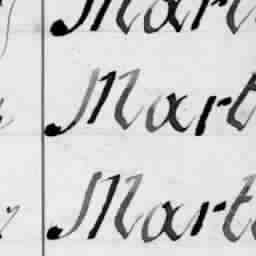 Mart
Mart
Mart